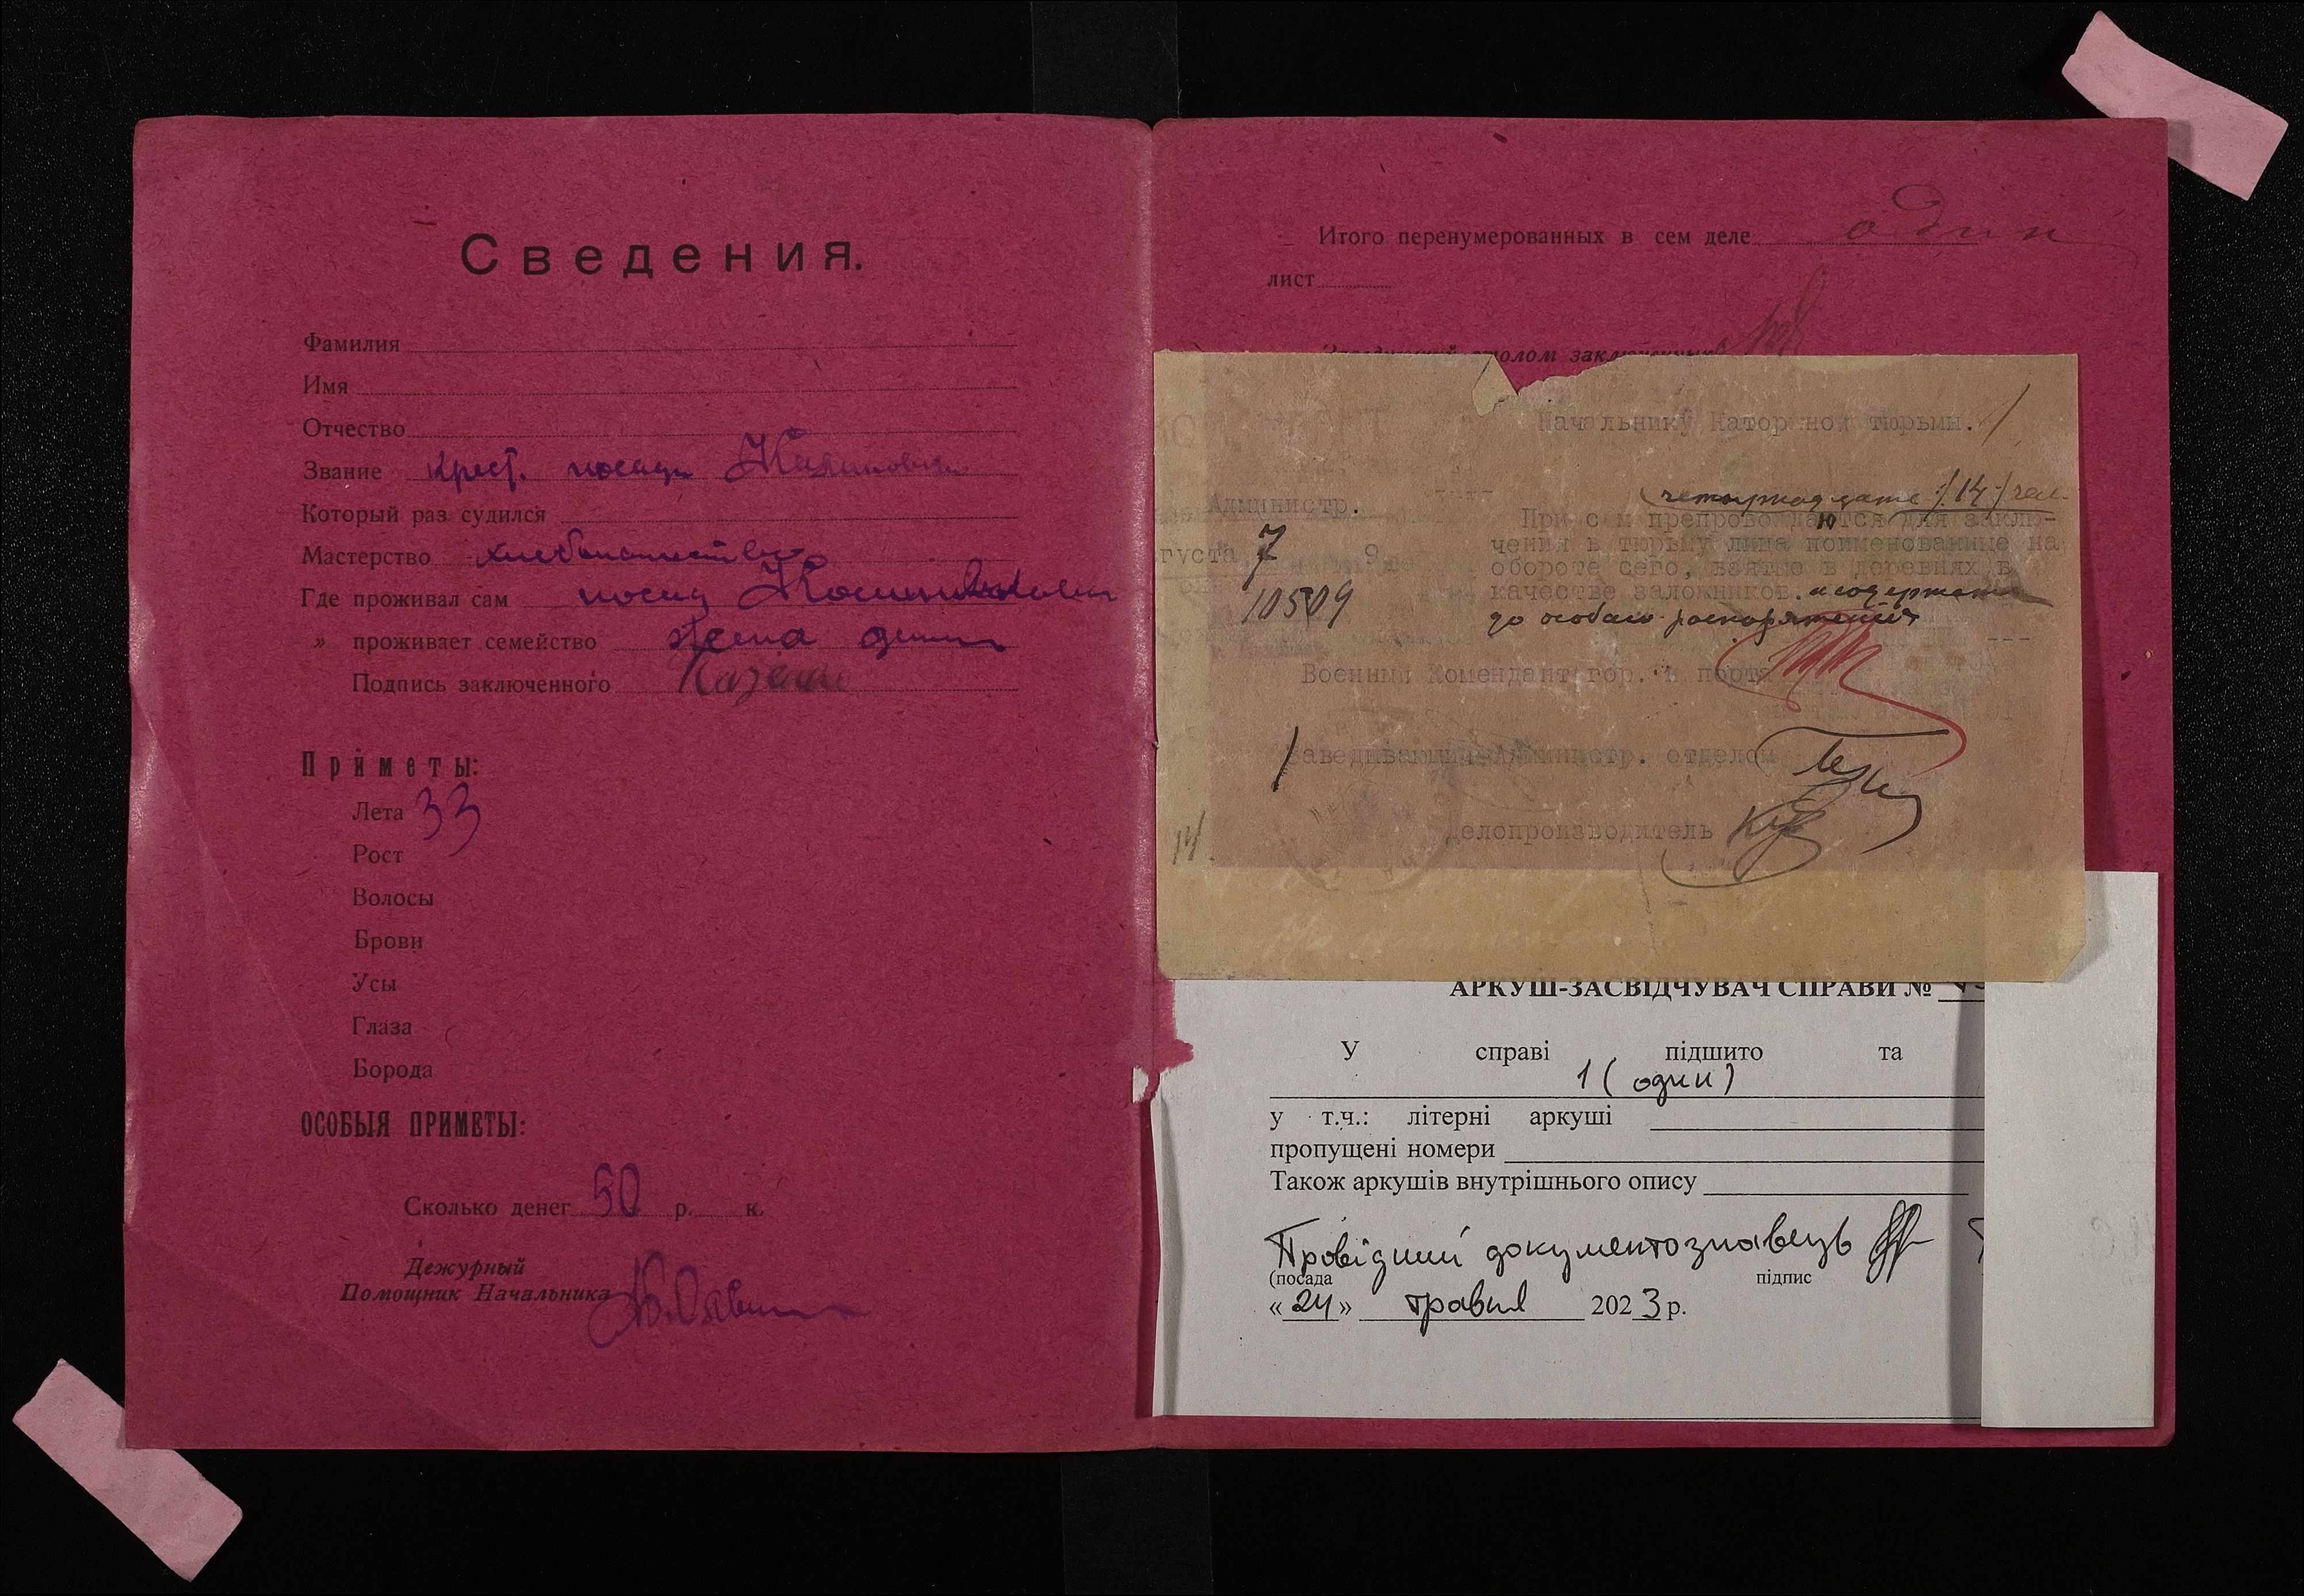 Сведения.
Фамилия
Имя
Отчество
Звание крест. посада
Который раз судился
Мастерство хлебопашество
Где проживал сам посад
» проживает семейство жена дети
Подпись заключенного
Приметы:
Лета 33
Рост
Волосы
Брови
Усы
Глаза
Борода
ОСОБЫЯ ПРИМЕТЫ:
Сколько денег 50 р. к.
Дежурный
Помощник Начальника
Итого перенумерованных в сем деле один
лист
столом заключенных
Начальнику Каторжной тюрьмы. 1
четырнадцать /14/ чел.
Администр.
При сем препровождаются для заклю-
густа 7 9
чения в тюрьму лица поименованные на
обороте сего, взятые в деревнях в
10509
качестве заложников. и содержать
до особого распоряжения
Военный Комендант гор. и порта
Заведывающий Администр. отделом
Делопроизводитель
14.
АРКУШ-ЗАСВІДЧУВАЧ СПРАВИ №
У справі підшито та
1 (один)
у т.ч.: літерні аркуші
пропущені номери
Також аркушів внутрішнього опису
Провідний документознавець
(посада підпис
«24» травня 2023 р.